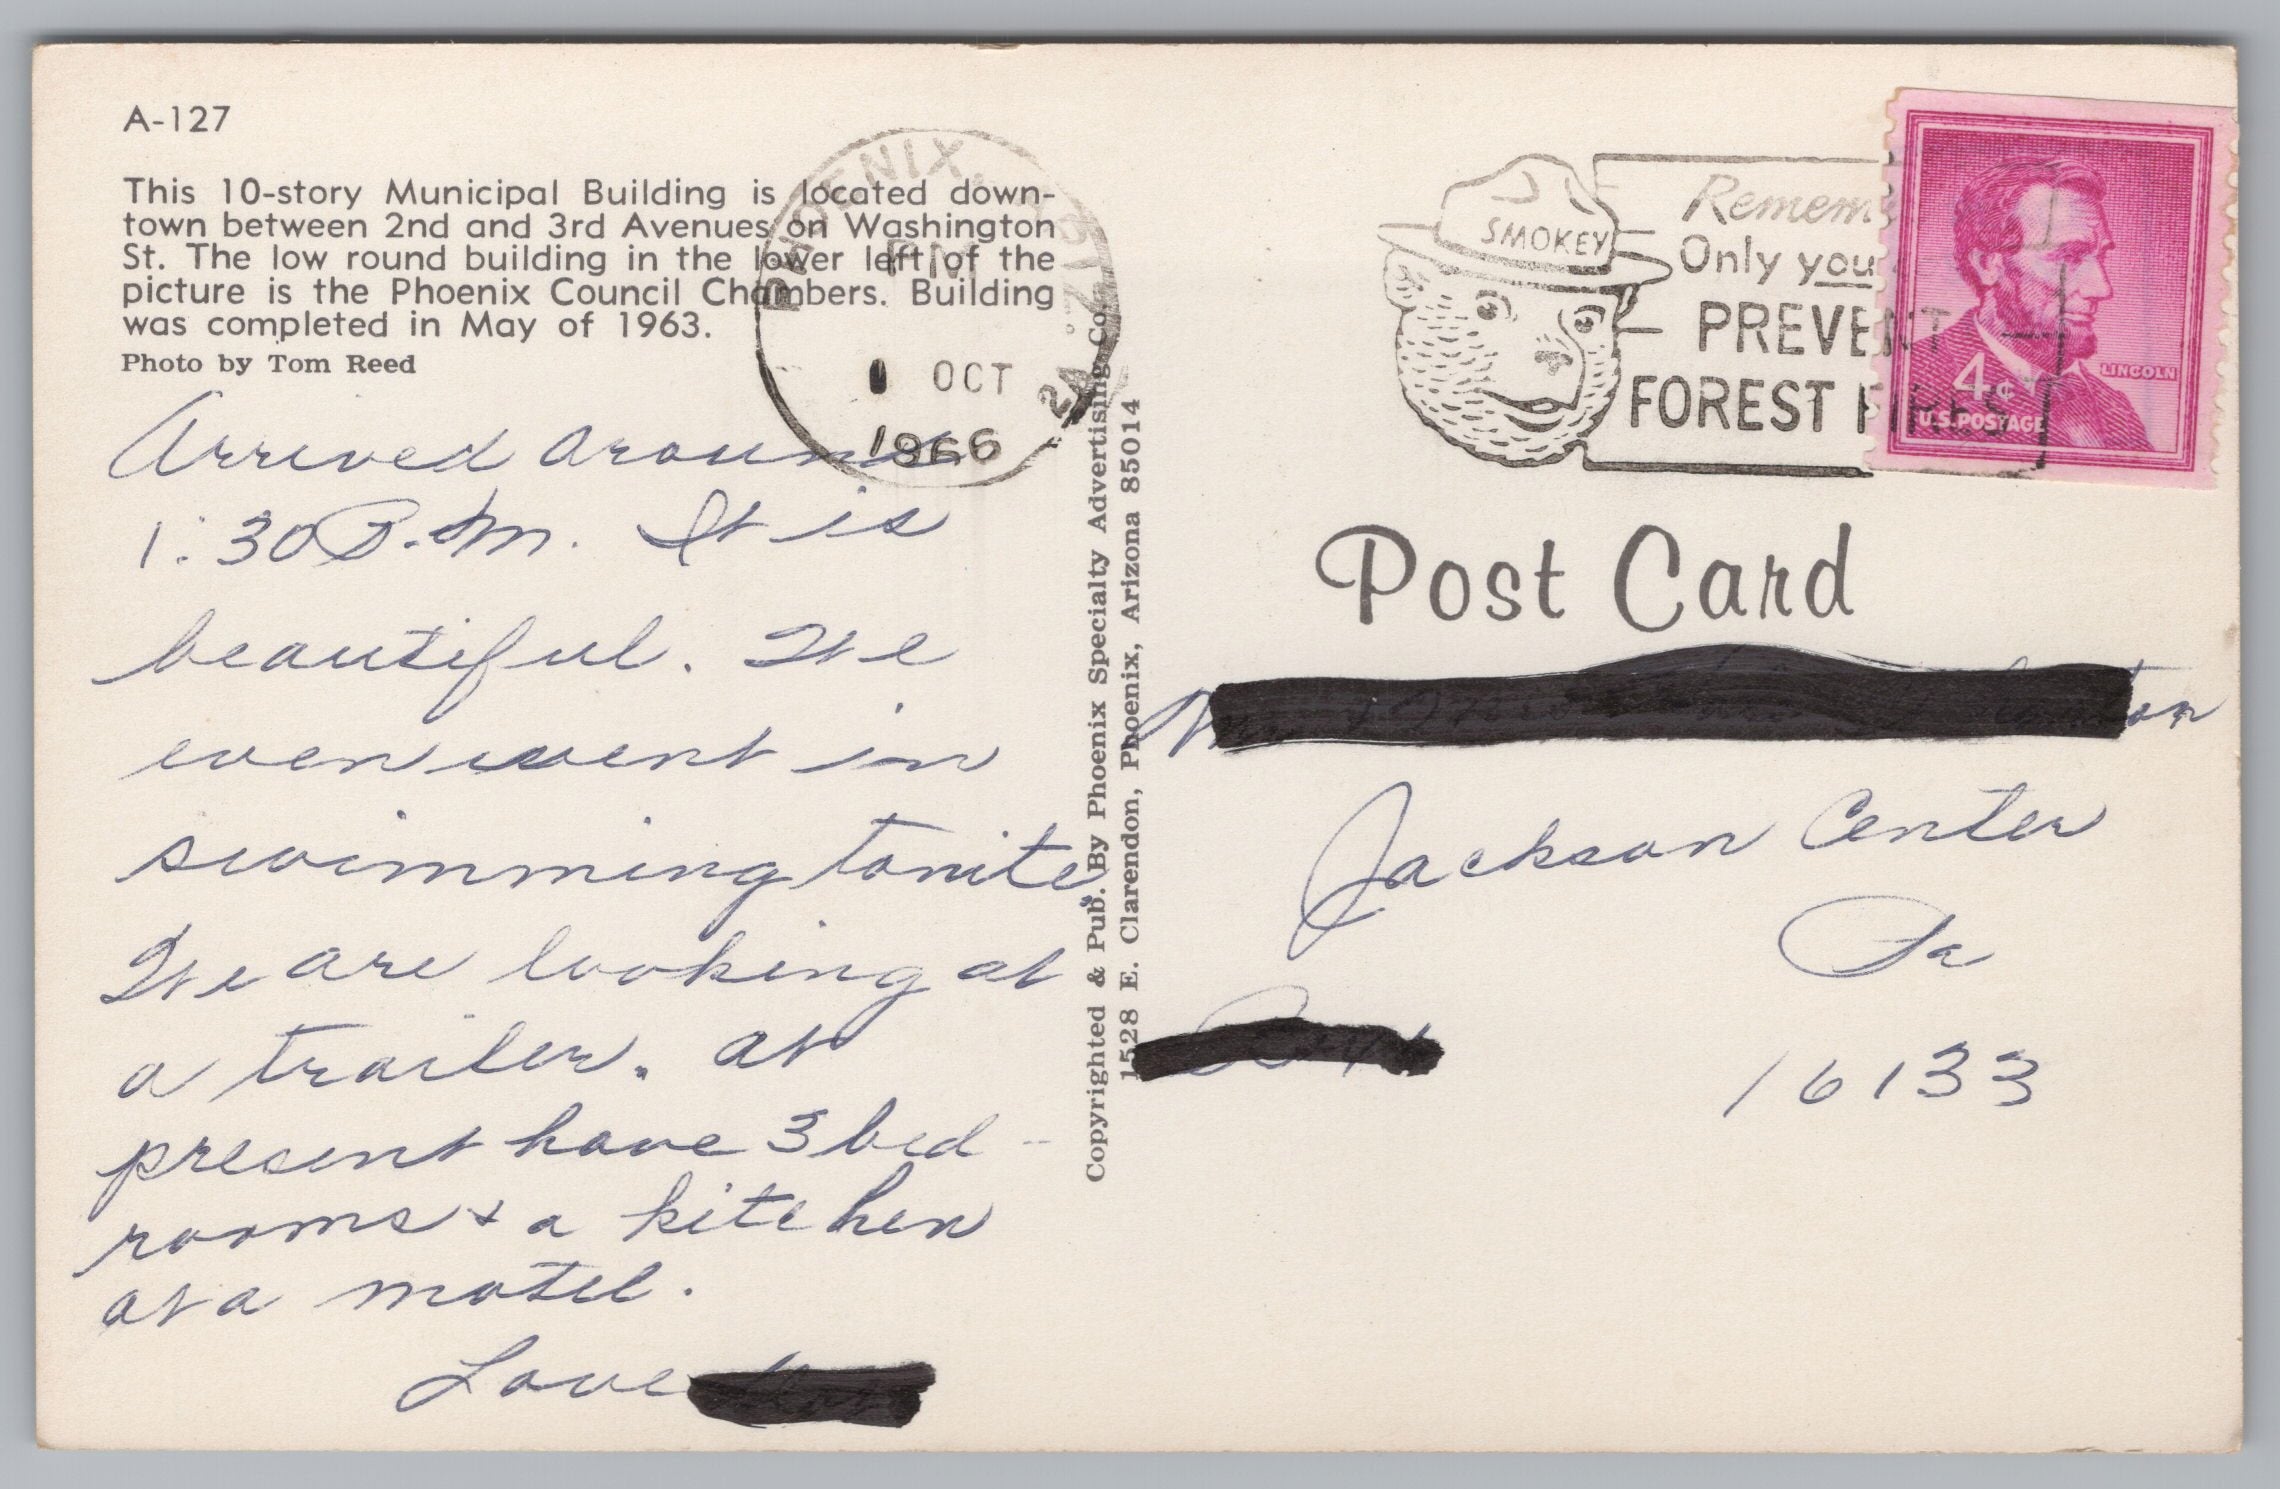 A-127
This 10-story Municipal Building is located down-
town between 2nd and 3rd Avenues on Washington
St. The low round building in the lower left of the
picture is the Phoenix Council Chambers. Building
was completed in May of 1963.
Photo by Tom Reed
Arrived around
1:30 P.M. It is
beautiful. We
even went in
swimming tonite.
We are looking at
a trailer. at
present have 3 bed-
rooms + a kitchen
at a motel.
Love
PHOENIX, ARIZ.
PM
1 OCT
1966
2A
Copyrighted & Pub. By Phoenix Specialty Advertising Co.
1528 E. Clarendon, Phoenix, Arizona 85014
SMOKEY
Only you
PREVENT
FOREST FIRES
4¢
LINCOLN
U.S. POSTAGE
Post Card
Jackson Center
Pa
16133